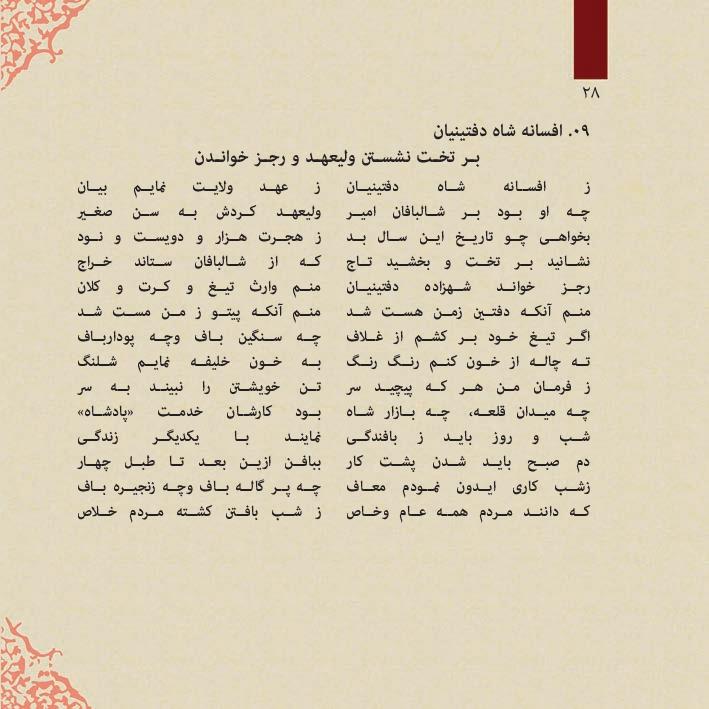 ۲۸
۰۹. افسانه شاه دفتینیان
بر تخت نشستن ولیعهد و رجز خواندن
ز افسانه شاه دفتینیان ز عهد ولایت نمایم بیان
چه او بود بر شالبافان امیر ولیعهد کردش به سن صغیر
بخواهی چو تاریخ این سال بد ز هجرت هزار و دویست و نود
نشانید بر تخت و بخشید تاج که از شالبافان ستاند خراج
رجز خواند شهزاده دفتینیان منم وارث تیغ و کرت و کلان
منم آنکه دفتین زمن هست شد منم آنکه پیتو ز من مست شد
اگر تیغ خود بر کشم از غلاف چه سنگین باف وچه پودارباف
ته چاله از خون کنم رنگ رنگ به خون خلیفه نمایم شلنگ
ز فرمان من هر که پیچید سر تن خویشتن را نبیند به سر
چه میدان قلعه، چه بازار شاه بود کارشان خدمت «پادشاه»
شب و روز باید ز بافندگی نمایند با یکدیگر زندگی
دم صبح باید شدن پشت کار ببافن ازین بعد تا طبل چهار
زشب کاری ایدون نمودم معاف چه پر گاله باف وچه زنجیره باف
که دانند مردم همه عام وخاص ز شب بافتن کشته مردم خلاص